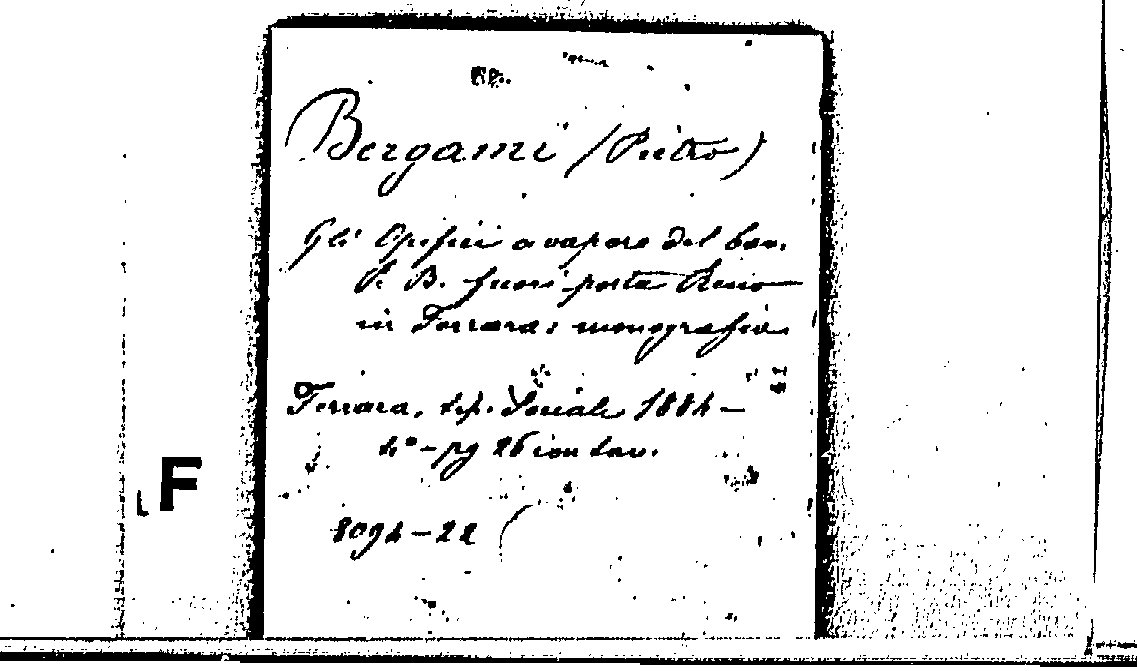 Bergami (Pietro)
Gli Opifici a vapore del cav.
P. B. fuori porta Reno
in Ferrara: monografia.
Ferrara, tip. Sociale 1884 -
4° - pg 26 con tav.
F
8094 - 22